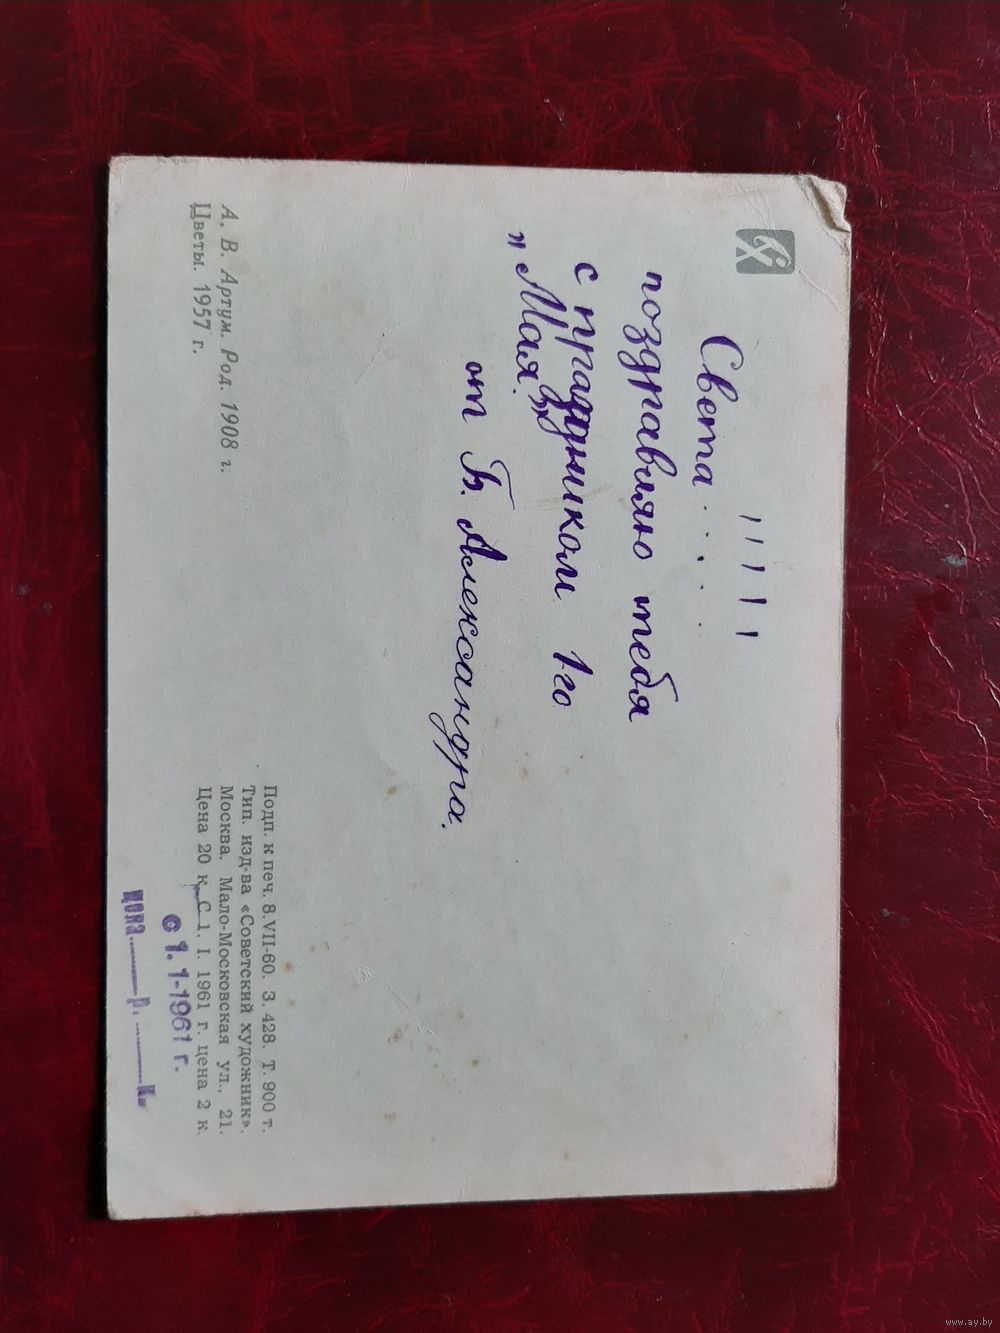 Света....!!!!!
поздравляю тебя
с праздником 1-го
„Мая."
от Б. Александра.
А. В. Артум. Род. 1908 г.
Цветы. 1957 г.
Подп. к печ. 8.VII-60. З. 428. Т. 900 т.
Тип. изд-ва «Советский художник».
Москва. Мало-Московская ул., 21.
Цена 20 к. С 1. I. 1961 г. цена 2 к.
с 1.1-1961 г.
цена..........р. ..........к.
www.ay.by